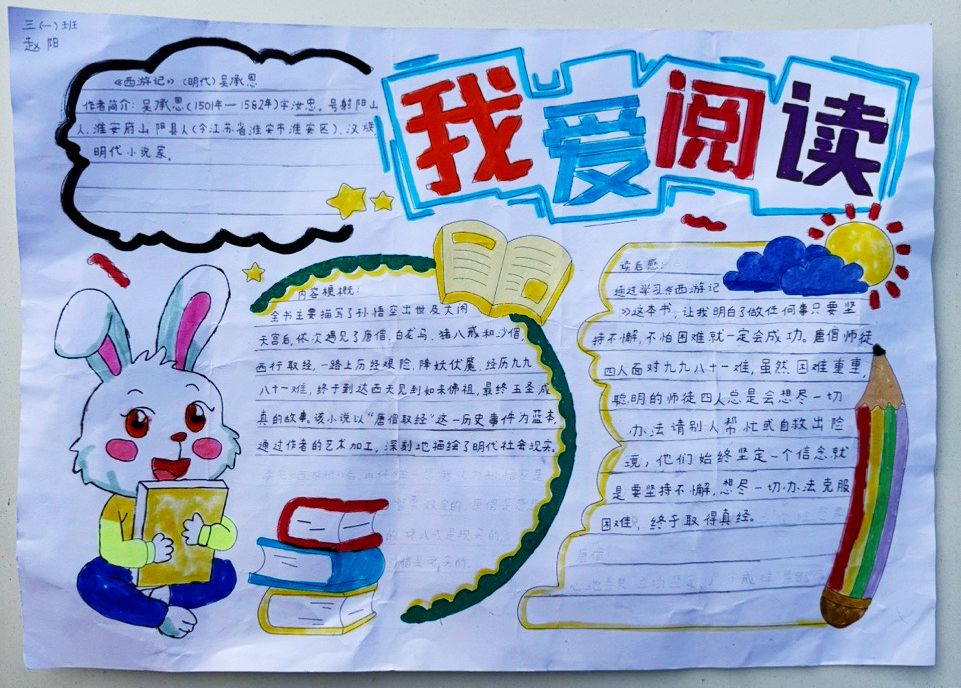 三(一)班
赵阳
我爱阅读
《西游记》(明代)吴承恩
作者简介:吴承恩(1501年—1582年)字汝忠。号射阳山
人,淮安府山阳县人(今江苏省淮安市淮安区),汉族
明代小说家。
内容模概:
全书主要描写了孙悟空出世及大闹
天宫后,依次遇见了唐僧,白龙马,猪八戒和沙僧,
西行取经,一路上历经艰险,降妖伏魔,经历九九
八十一难,终于到达西天见到如来佛祖,最终五圣成
真的故事。该小说以“唐僧取经”这一历史事件为蓝本,
通过作者的艺术加工,深刻地描绘了明代社会现实。
读后感:
通过学习《西游记
》这本书,让我明白了做任何事只要坚
持不懈,不怕困难就一定会成功。唐僧师徒
四人面对九九八十一难,虽然困难重重,
聪明的师徒四人总是会想尽一切
办法请别人帮忙或自救出险
境,他们始终坚定一个信念就
是要坚持不懈,想尽一切办法克服
困难,终于取得真经。
唐僧